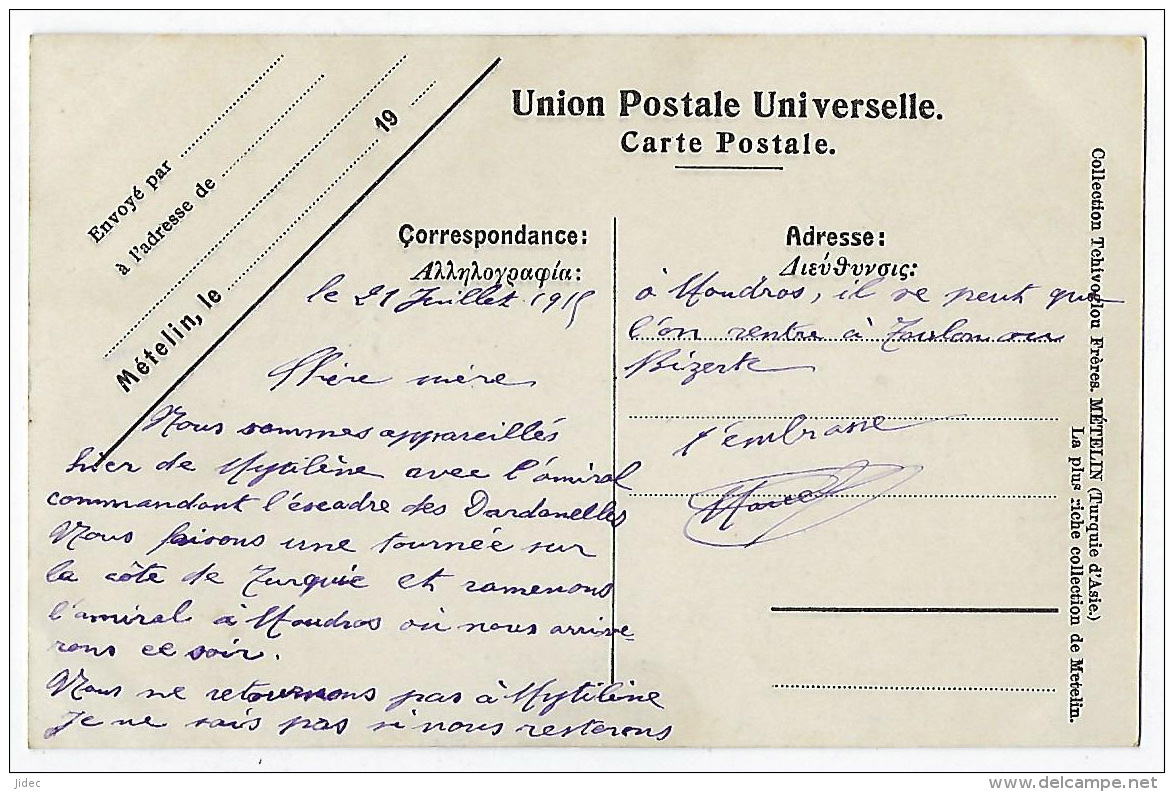 Envoyé par
à l'adresse de
Mételin, le 19
Union Postale Universelle.
Carte Postale.
Correspondance:
Ἀλληλογραφία:
le 21 Juillet 1915
Chère mère
Nous sommes appareillés
hier de Mytilène avec l'amiral
commandant l'escadre des Dardanelles
Nous faisons une tournée sur
la côte de Turquie et ramenons
l'amiral à Moudros où nous arrive-
rons ce soir.
Nous ne retournons pas à Mytilène
Je ne sais pas si nous resterons
Adresse:
Διεύθυνσις:
à Moudros, il se peut que
l'on rentre à Toulon ou
Bizerte
t'embrasse
Marcel
Collection Tchivoglou Frères. MÉTELIN (Turquie d'Asie.)
La plus riche collection de Metelin.
Jidec
delcampe.net